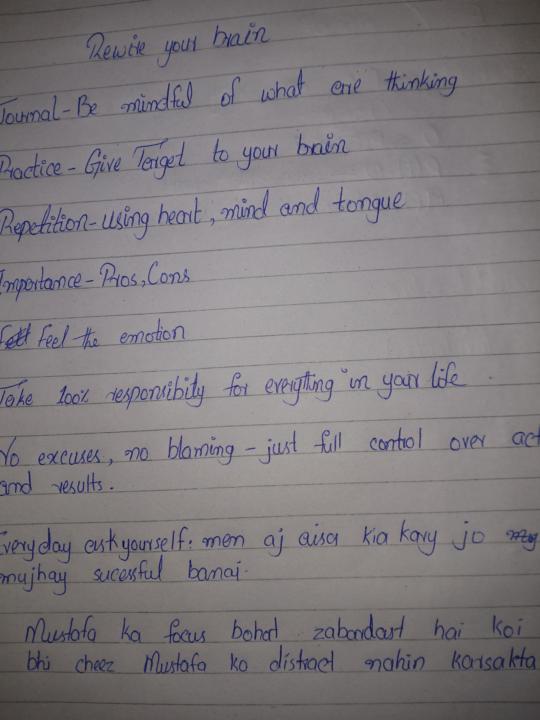 Rewire your brain
Journal-Be mindful of what are thinking
Practice - Give Target to your brain
Repetition-using heart, mind and tongue
Importance-Pros, Cons
Feel the emotion
Take 100% responsibility for everything in your life.
No excuses, no blaming - just full control over act
and results.
Everyday ask yourself: men aj aisa kia kary jo
mujhay sucessful banai.
Mustafa ka focus bohat zabardast hai koi
bhi cheez Mustafa ko distract nahin karsakta